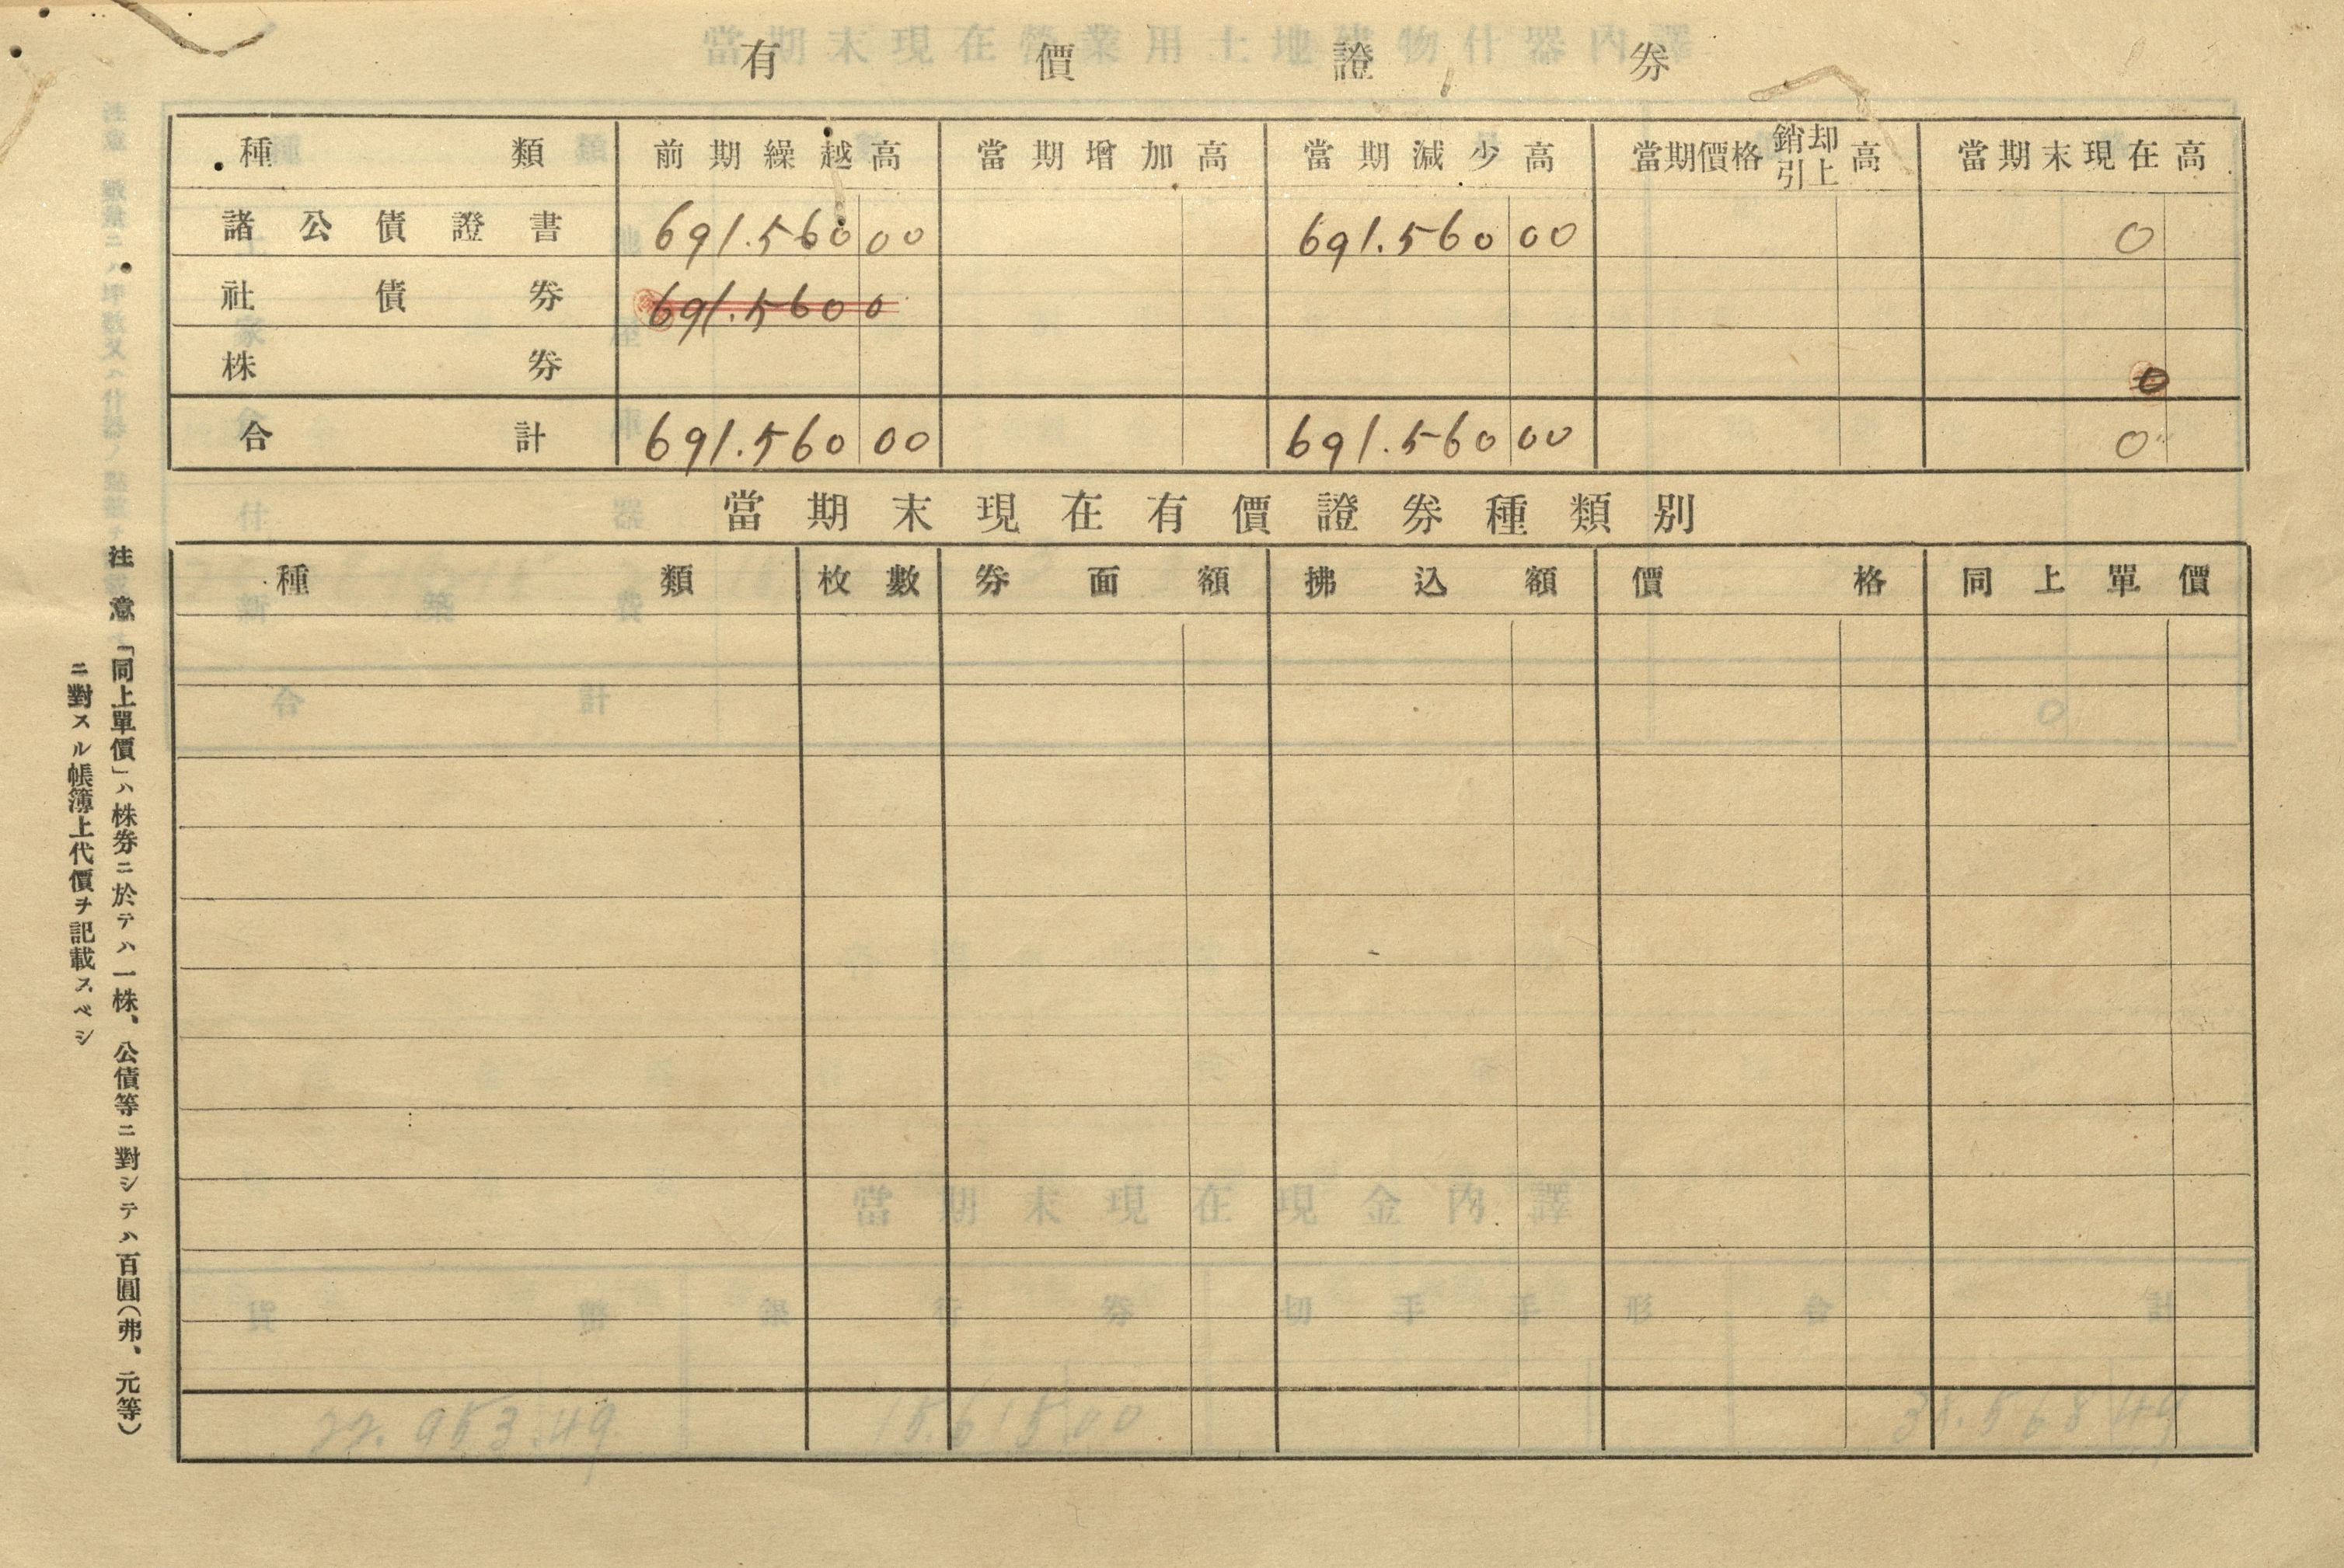 有價證券
種類 前期繰越高 當期增加高 當期減少高 當期價格銷却引上高 當期末現在高
諸公債證書 691.560 00 691.560 00 0
社債券 691.560 0
株券 0
合計 691.560 00 691.560 00 0
當期末現在有價證券種類別
種類 枚數 券面額 拂込額 價格 同上單價
注意 「同上單價」ハ株券ニ於テハ一株、公債等ニ對シテハ百圓(弗、元等)
ニ對スル帳簿上代價ヲ記載スベシ